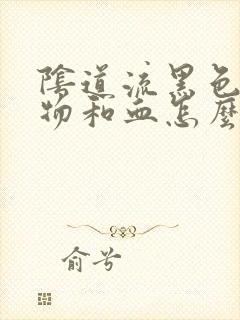 陰道流黑色
物和血怎麼
俞兮